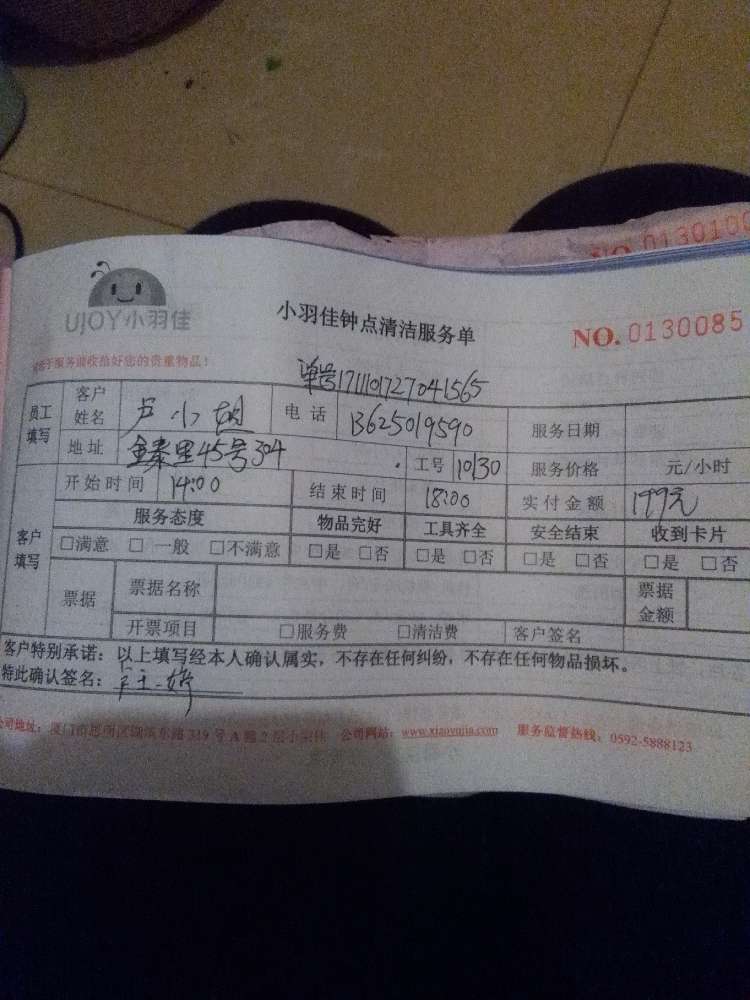 NO. 0130100
UJOY小羽佳
小羽佳钟点清洁服务单
NO. 0130085
服务前收拾好您的贵重物品！
单号1711101727041565
员工填写 客户姓名 卢小姐 电话 13625019590 服务日期
地址 金泰里45号304 工号 10130 服务价格 元/小时
客户填写 开始时间 14:00 结束时间 18:00 实付金额 199元
服务态度 物品完好 工具齐全 安全结束 收到卡片
□满意 □一般 □不满意 □是 □否 □是 □否 □是 □否 □是 □否
票据 票据名称 票据金额
开票项目 □服务费 □清洁费 客户签名
客户特别承诺：以上填写经本人确认属实，不存在任何纠纷，不存在任何物品损坏。
特此确认签名：
公司地址：厦门市思明区湖滨东路319号A题2层小羽佳 公司网站：www.xiaoyujia.com 服务监督热线：0592-5888123